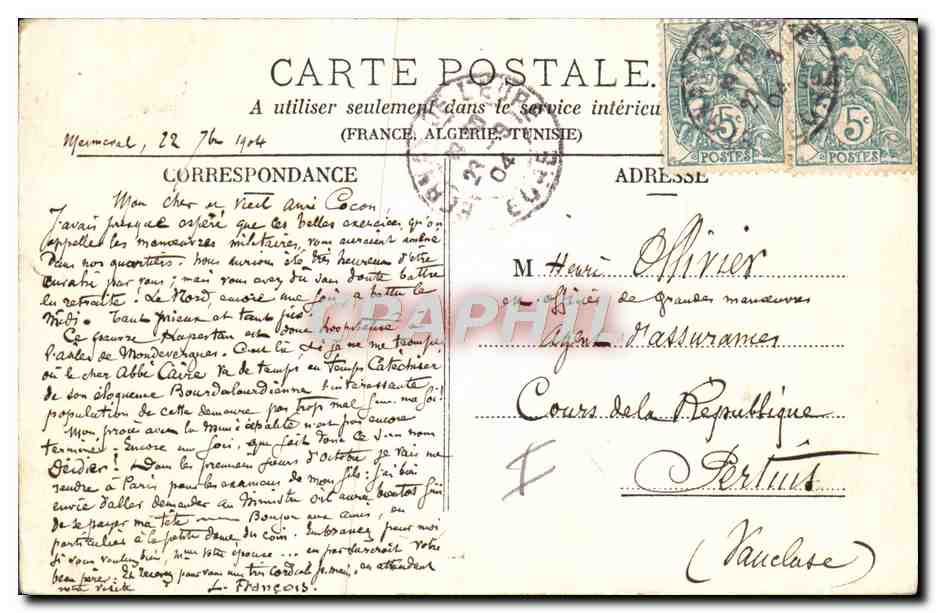 CARTE POSTALE
A utiliser seulement dans le service intérieur
(FRANCE, ALGÉRIE, TUNISIE)
22 7bre 1904
CORRESPONDANCE
ADRESSE
Mon cher et vieil ami Cocon
J'avais presque espéré que les belles exercices qu'on
appelle les manœuvres militaires, vous auraient amené
dans nos quartiers. Nous aurions été très heureux d'être
envahi par vous; mais vous avez dû sans doute battre
en retraite. Le Nord encore une fois a battu le
Midi. Tant mieux et tant pis
Ce pauvre est donc
l'asile de Mondevergues. C'est là, si je ne me trompe
où le cher Abbé Caire va de temps en temps Catéchiser
de son éloquence Bourdalourdienne l'interessante
population de cette demeure pas trop mal ma foi!
Mon procès avec la Municipalité n'est pas encore
terminé. Encore une fois, que fait donc ce
Dédier! Dans les premiers jours d'octobre je vais me
rendre à Paris pour les examens de mon fils: j'ai bien
envie d'aller demander au Ministre s'il aura bientôt fini
de se payer ma tête Bonjour aux amis, en
particulier à la petite dame du coin. Embrassez pour moi
si vous voulez bien, votre épouse... en par votre
beau père. Et recevez pour vous un très cordial s. main, en attendant
votre visite L. François.
M Henri Ollivier
en officier de grandes manœuvres
Agent d'assurances
Cours de la République
Pertuis
(Vaucluse)
5c
POSTES
5c
POSTES
EURE
23
04
CPAPHIL